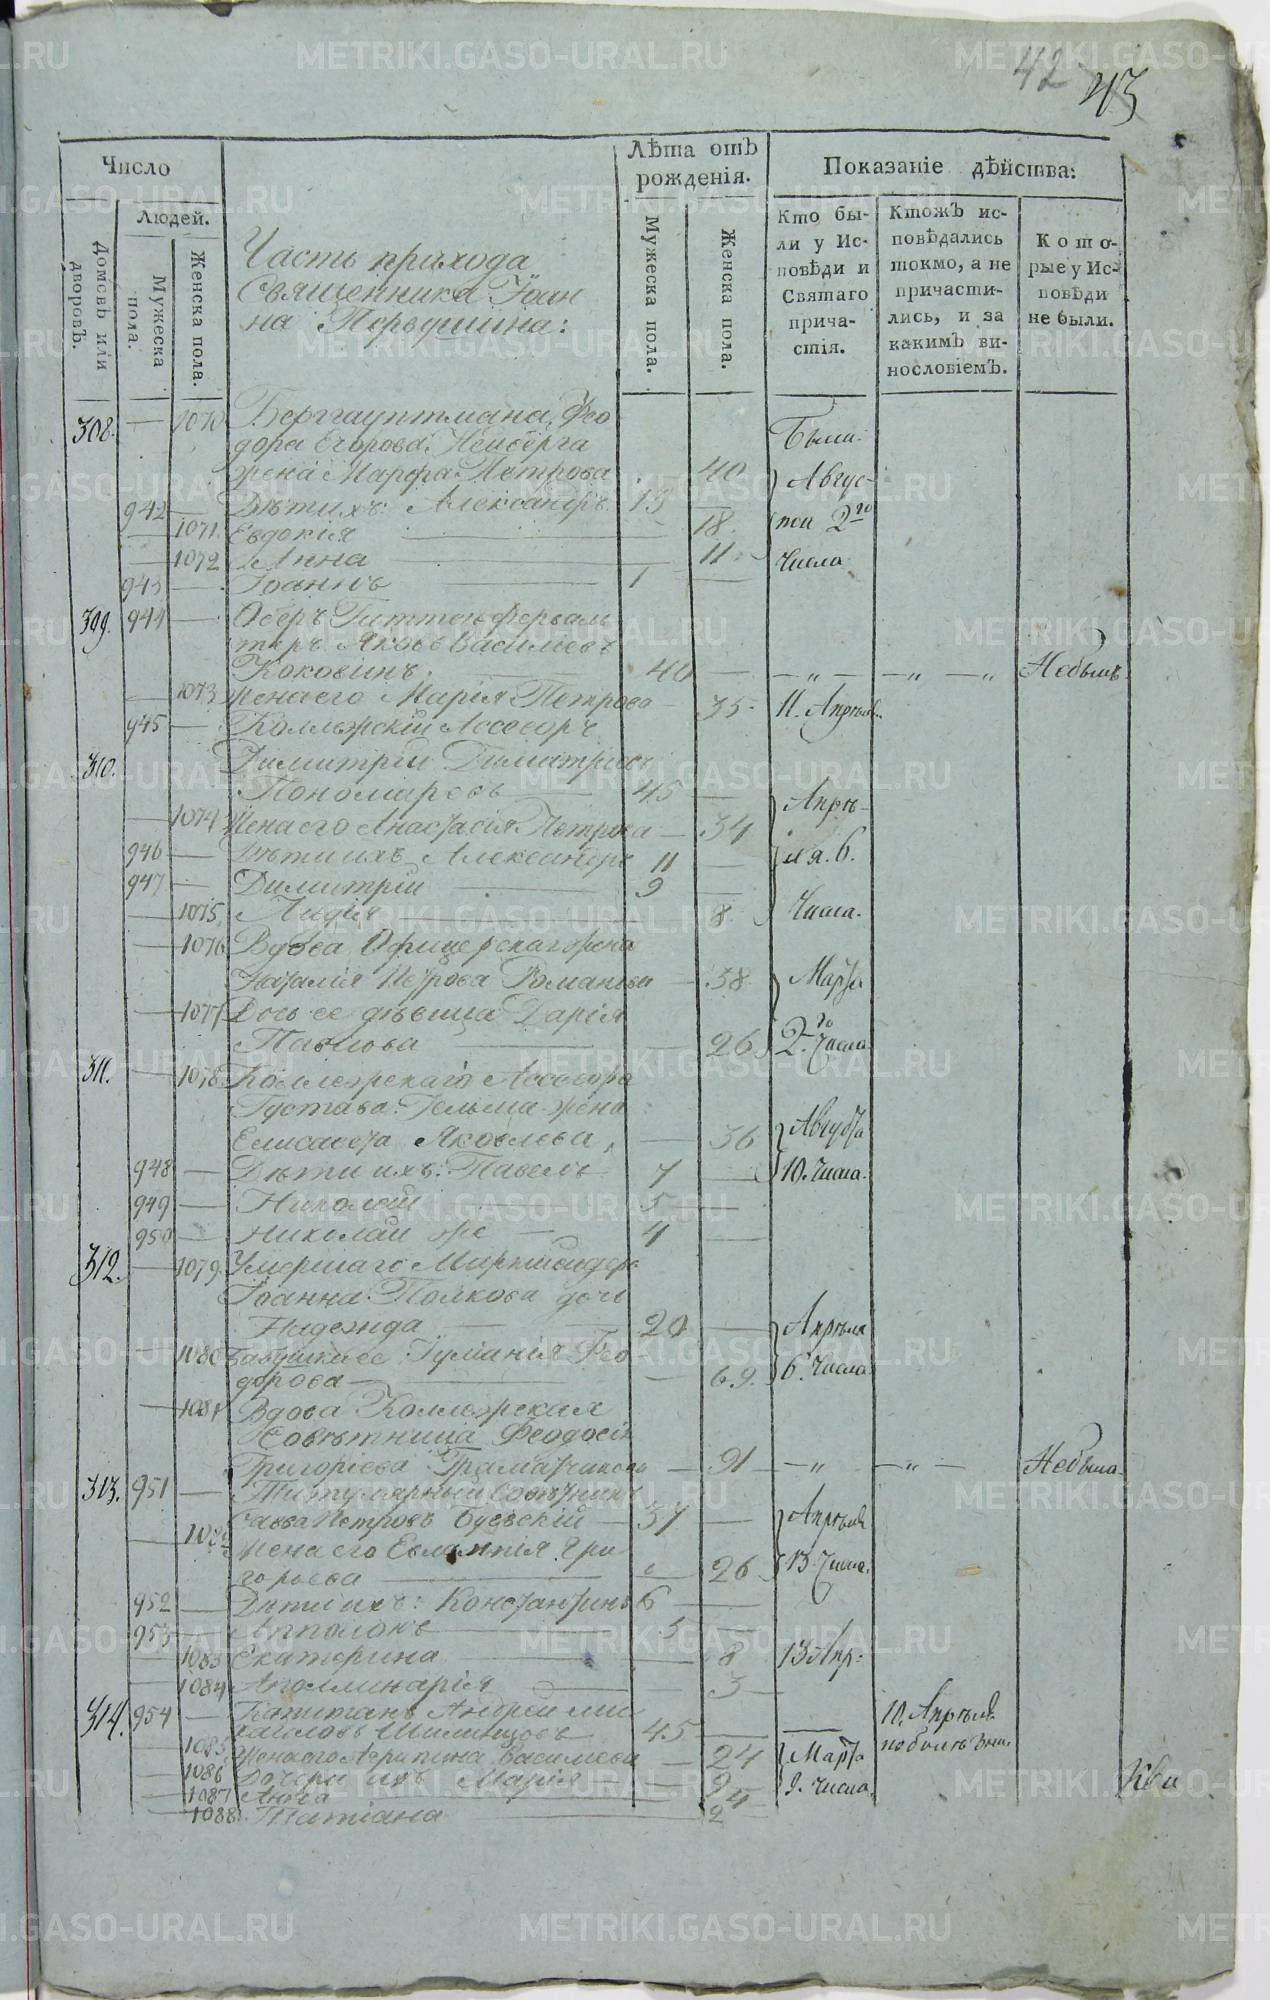 42 43
Число
Людей.
Домовъ или дворовъ.
Мужеска пола.
Женска пола.
Лѣта отъ рожденія.
Мужеска пола.
Женска пола.
Показаніе дѣйства:
Кто бы-
ли у Ис-
повѣди и
Святаго
прича-
стія.
Ктожъ ис-
повѣдались
токмо, а не
причасти-
лись, и за
какимъ ви-
нословіемъ.
Кото-
рые у Ис-
повѣди
не были.
Часть прихода
Священника Іоан
на Первушина:
308. — 1070 Берггауптмана Фео
дора Егорова
жена Марфа Петрова 40
Были
Авгус-
942 — Дѣти ихъ: Александръ 13 —
— 1071. Евдокія — 18.
та 2го
— 1072 Анна — 11.
Числа
943 — Іоаннъ — 1 —
309. 944 — Оберъ Гиттенфервал
теръ Яковъ Васильевъ
Коковинъ. 40 — — „ — „ — „ Небылъ
— 1073 Жена его Марія Петрова — 35 11. Апрѣля.
310. 945 — Коллежскій Ассесоръ
Димитрій Димитріевъ
Пономаревъ — 45 —
— 1074 Жена его Анастасія Петрова — 34
Апрѣ-
946 — Дѣти ихъ Александръ 11 —
ля. 6.
947 — Димитрій — 9 —
— 1075 Лидія — 8
Числа.
— 1076 Вдова Офицерская жена
Наталія Петрова Романова — 38
Марта
— 1077 Дочь ее дѣвица Дарія
Павлова — 26
2го Числа
311. — 1078 Коллежскаго Ассесора
Густава Гельма жена
Елисавета Яковлева, — 36
Августа
948 — Дѣти ихъ: Павелъ 7 —
10. Числа.
949 — Николай 5 —
950 — Николай же — 4 —
312. — 1079 Умершаго
Іоанна Полкова дочь
Надежда — 20 —
Апрѣля
— 1080 Бабушка ее Фео
дорова — 69.
6. Числа
— 1081 Вдова Коллежская
Совѣтница Феодосія
Григоріева — 91 — „ — „ — Небыла
313. 951 — Титулярный Совѣтникъ
Савва Петровъ — 37 —
Апрѣля
— 1082 Жена его Евлампія Гри-
горьева — 26
13 Числа.
952 — Дѣти ихъ: Константинъ 6 —
953 — Апполонъ — 5 —
— 1083 Екатерина — 8
13 Апр:
— 1084 Аполлинарія — 3 —
314. 954 — Капитанъ Андрей Ми
хайловъ 45 —
10. Апрѣля
по болѣзни.
— 1085 Жена его Агрипина Васильева — 24
Марта
— 1086 Дочери ихъ Марія —
9. Числа.
— 1087 Анна — 4
— 1088 Татіана — 2
METRIKI.GASO-URAL.RU